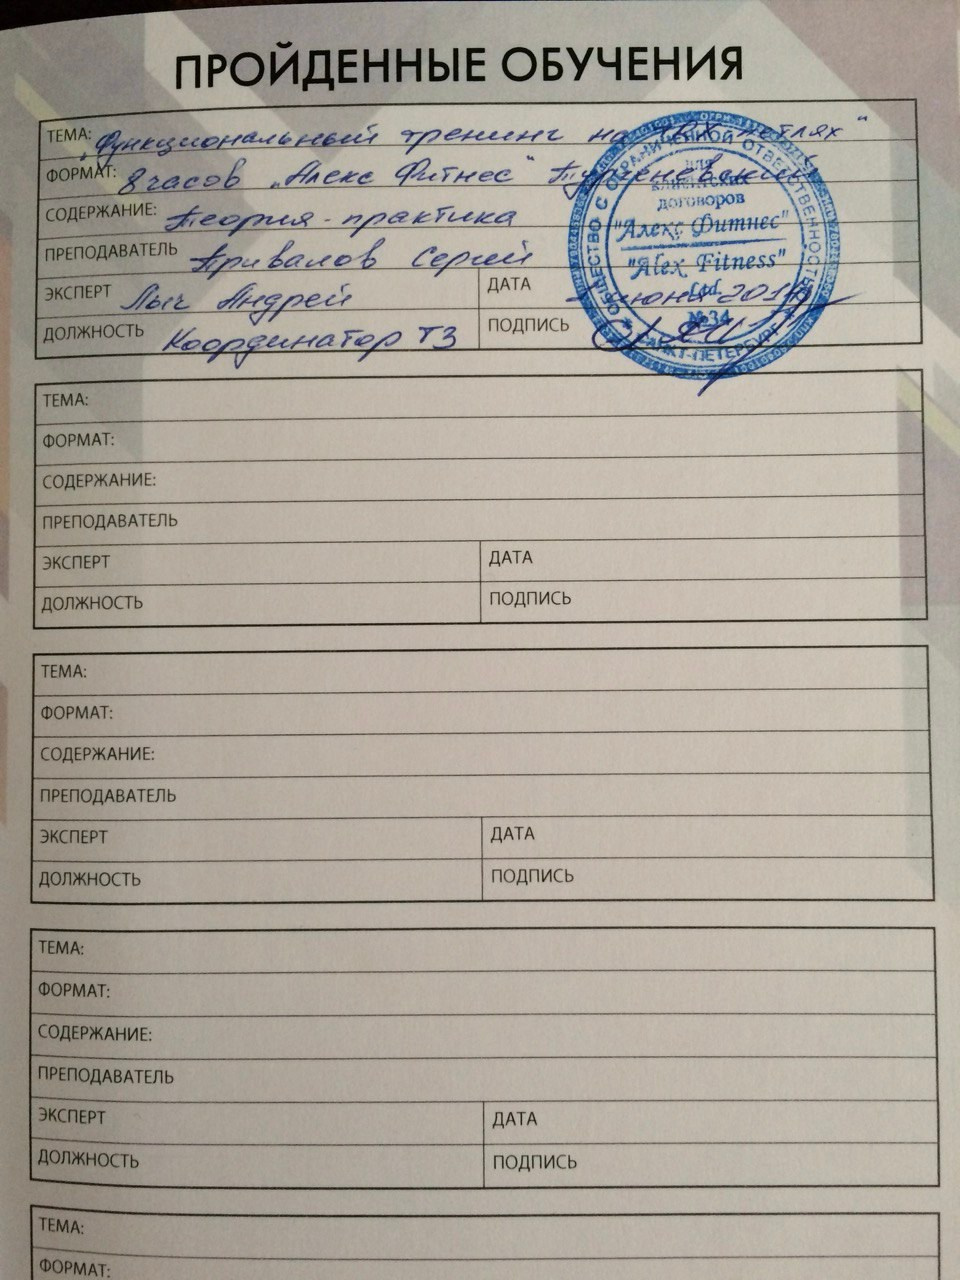 ПРОЙДЕННЫЕ ОБУЧЕНИЯ
ТЕМА: "Функциональный тренинг на петлях"
ФОРМАТ: 8 часов "Алекс Фитнес" Тургеневский
СОДЕРЖАНИЕ: Теория-практика
ПРЕПОДАВАТЕЛЬ Привалов Сергей
ЭКСПЕРТ Лыч Андрей
ДАТА июнь
ДОЛЖНОСТЬ Координатор ТЗ
ПОДПИСЬ
ОБЩЕСТВО С ОГРАНИЧЕННОЙ ОТВЕТСТВЕННОСТЬЮ
САНКТ-ПЕТЕРБУРГ
для
клиентских
договоров
"Алекс Фитнес"
"Alex Fitness"
Ltd
№34
ТЕМА:
ФОРМАТ:
СОДЕРЖАНИЕ:
ПРЕПОДАВАТЕЛЬ
ЭКСПЕРТ ДАТА
ДОЛЖНОСТЬ ПОДПИСЬ
ТЕМА:
ФОРМАТ:
СОДЕРЖАНИЕ:
ПРЕПОДАВАТЕЛЬ
ЭКСПЕРТ ДАТА
ДОЛЖНОСТЬ ПОДПИСЬ
ТЕМА:
ФОРМАТ:
СОДЕРЖАНИЕ:
ПРЕПОДАВАТЕЛЬ
ЭКСПЕРТ ДАТА
ДОЛЖНОСТЬ ПОДПИСЬ
ТЕМА:
ФОРМАТ: